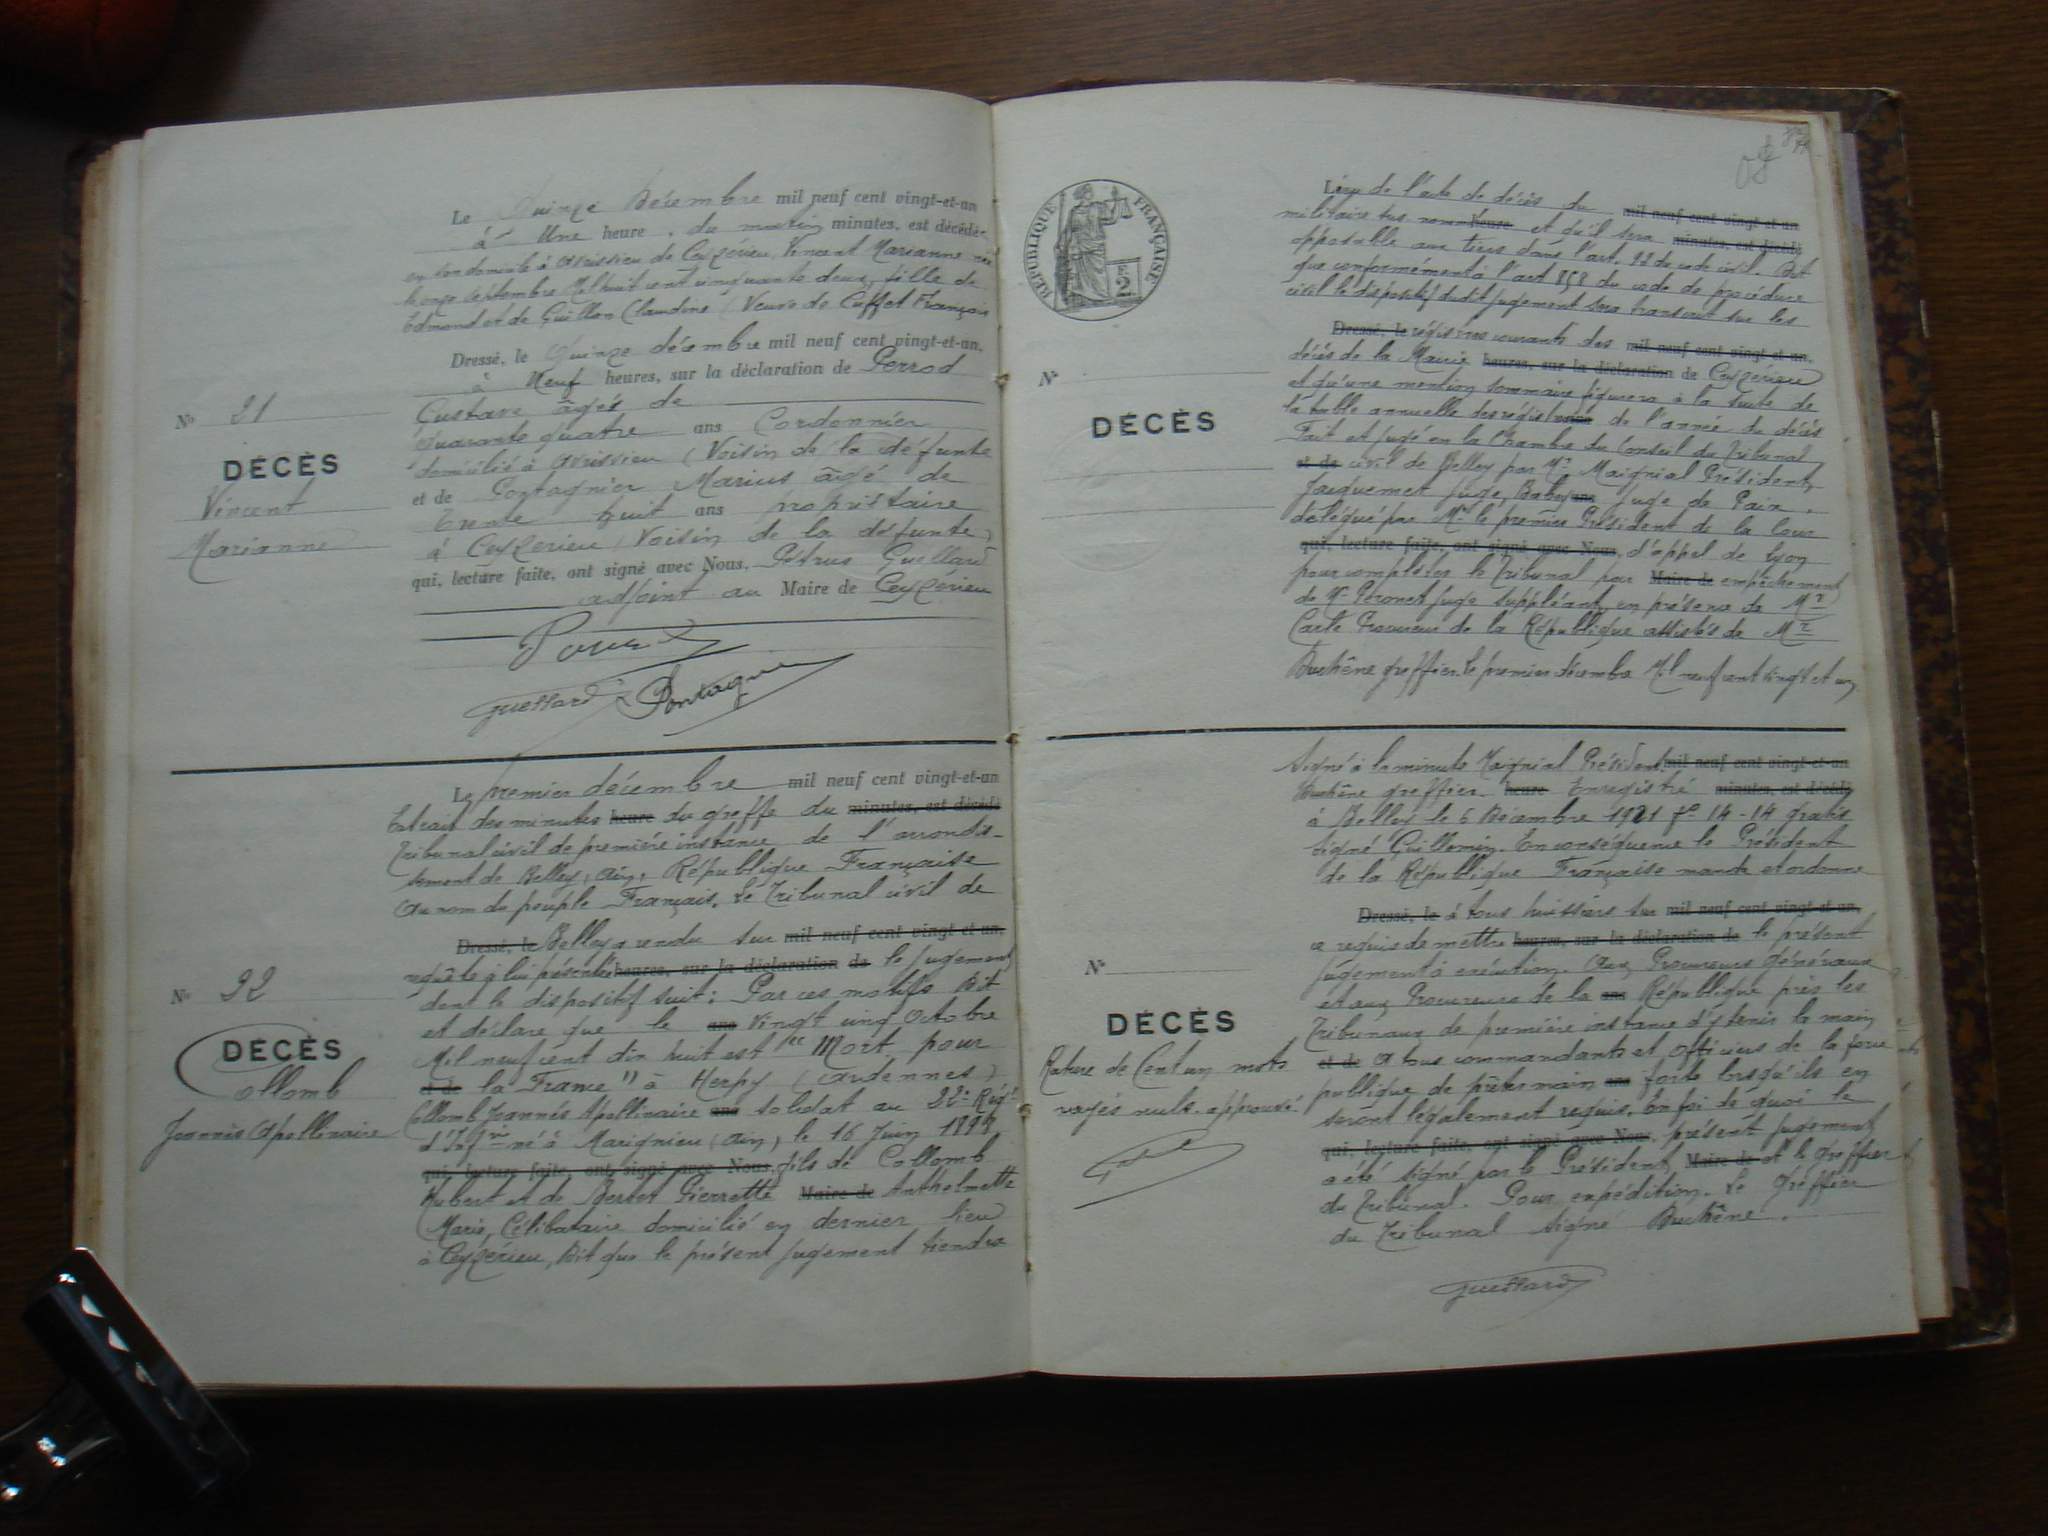 Le Quinze Décembre mil neuf cent vingt-et-un
à Une heure, du matin minutes, est décédée
en son domicile à Avrissieu de Ceyzérieu, Vincent Marianne née
le onze septembre Mil huit cent cinquante deux, fille de
Edmond et de Guillon Claudine (Veuve de Cuffet François
Dressé, le Quinze décembre mil neuf cent vingt-et-un,
à Neuf heures, sur la déclaration de Perrod
Gustave âgés de
Quarante quatre ans Cordonnier
domicilié à Avrissieu (Voisin de la défunte
et de Pontagnier Marius âgé de
trente huit ans propriétaire
à Ceyzerieu (Voisin de la défunte)
qui, lecture faite, ont signé avec Nous, Pétrus Guillard
adjoint au Maire de Ceyzerieu
Guettard Pontagnier
No 21
DÉCÈS
Vincent
Marianne
Le premier décembre mil neuf cent vingt-et-un
Extrait des minutes heure du greffe du minutes, est décédé
Tribunal civil de première instance de l'arrondis-
sement de Belley, Ain, République Française
Au nom du peuple Français. Le Tribunal civil de
Dressé, le Belley a rendu sur mil neuf cent vingt et un,
requête à lui présentée heures, sur la déclaration de le jugement
dont le dispositif suit: Par ces motifs Dit
et déclare que le ans Vingt cinq Octobre
Mil neuf cent dix huit est "Mort pour
et de la France" à Herpy (Ardennes)
Collomb Joannès Apollinaire ans soldat au 22e Régt
d'Infrie né à Marignieu (Ain), le 16 Juin 1897
qui, lecture faite, ont signé avec Nous, fils de Collomb
Hubert et de Berlet Pierrette Maire de Anthelmette
Marie, Célibataire domicilié en dernier lieu
à Ceyzérieu, Dit que le présent jugement tiendra
No 22
DÉCÈS
Collomb
Joannès Apollinaire
RÉPUBLIQUE FRANÇAISE
2
Lieu de l'acte de décès du mil neuf cent vingt et un
militaire sus nommé heure et qu'il sera minutes, est décédé
opposable aux tiers dans l'art. 92 du code civil. Dit
que conformément à l'art 858 du code de procédure
civil le dispositif dudit jugement sera transcrit sur les
Dressé, le régistres courants des mil neuf cent vingt et un,
décès de la Mairie heures, sur la déclaration de Ceyzérieu
et qu'une mention sommaire figurera à la suite de
la table annuelle des régistres de l'année du décès
Fait et jugé en la Chambre du Conseil du Tribunal
et de civil de Belley par Mr Maignial Président,
Jacquemet Juge, Baby ans Juge de Paix,
délégué par Mr le premier Président de la Cour
qui, lecture faite, ont signé avec Nous, d'appel de Lyon
pour compléter le Tribunal pour Maire de empêchement
de Mr Peronet juge suppléant, en présence de Mr
Carle Procureur de la République assistés de Mr
Duchêne greffier le premier décembre Mil neuf cent vingt et un
No
DÉCÈS
Signé à la minute Maignial Président mil neuf cent vingt-et-un
Duchêne greffier. heure Enregistré minutes, est décédé
à Belley le 6 Décembre 1921 fo 14-14 gratis
signé Guillemin. En conséquence le Président
de la République Française mande et ordonne
Dressé, le à tous huissiers sur mil neuf cent vingt-et-un,
ce requis de mettre heures, sur la déclaration de le présent
jugement à exécution. Aux Procureurs Généraux
et aux Procureurs de la ans République près les
Tribunaux de première instance d'y tenir la main
et de A tous commandants et officiers de la force
publique de prêter main ans forte lorsqu'ils en
seront légalement requis. En foi de quoi le
qui, lecture faite, ont signé avec Nous, présent jugement
a été signé par le Président, Maire de et le greffier
du Tribunal. Pour expédition. Le Greffier
du Tribunal signé Duchêne.
No
DÉCÈS
Rature de Cent un mots
rayés nuls. approuvé.
Guettard